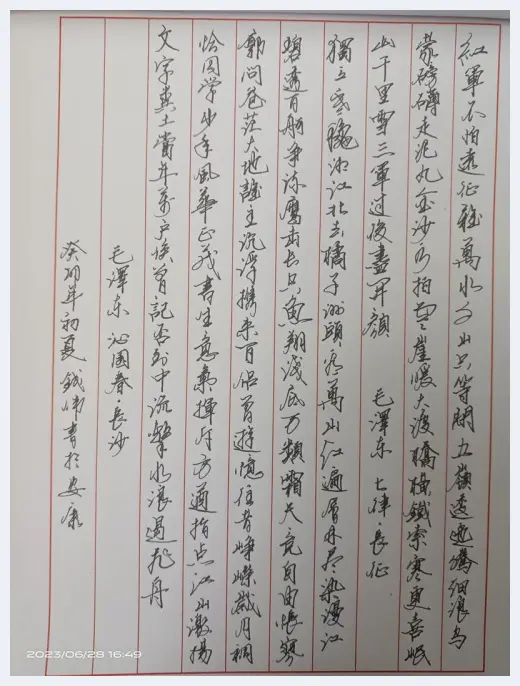 紅軍不怕遠征難萬水千山只等閒五嶺逶迤騰細浪烏
蒙磅礴走泥丸金沙水拍雲崖暖大渡橋橫鐵索寒更喜岷
山千里雪三軍过後盡開顏 毛澤东 七律長征
獨立寒秋湘江北去橘子洲頭看萬山红遍層林尽染漫江
碧透百舸争流鹰击长空魚翔淺底万類霜天竞自由悵寥
廓问苍茫大地誰主沉浮攜来百侣曾遊憶往昔崢嶸歲月稠
恰同学少年風華正茂書生意氣揮斥方遒指点江山激揚
文字粪土當年萬户侯曾記否到中流擊水浪遏飛舟
毛澤东 沁園春·長沙
癸卯年初夏 錢偉書於安康
2023/06/28 16:49